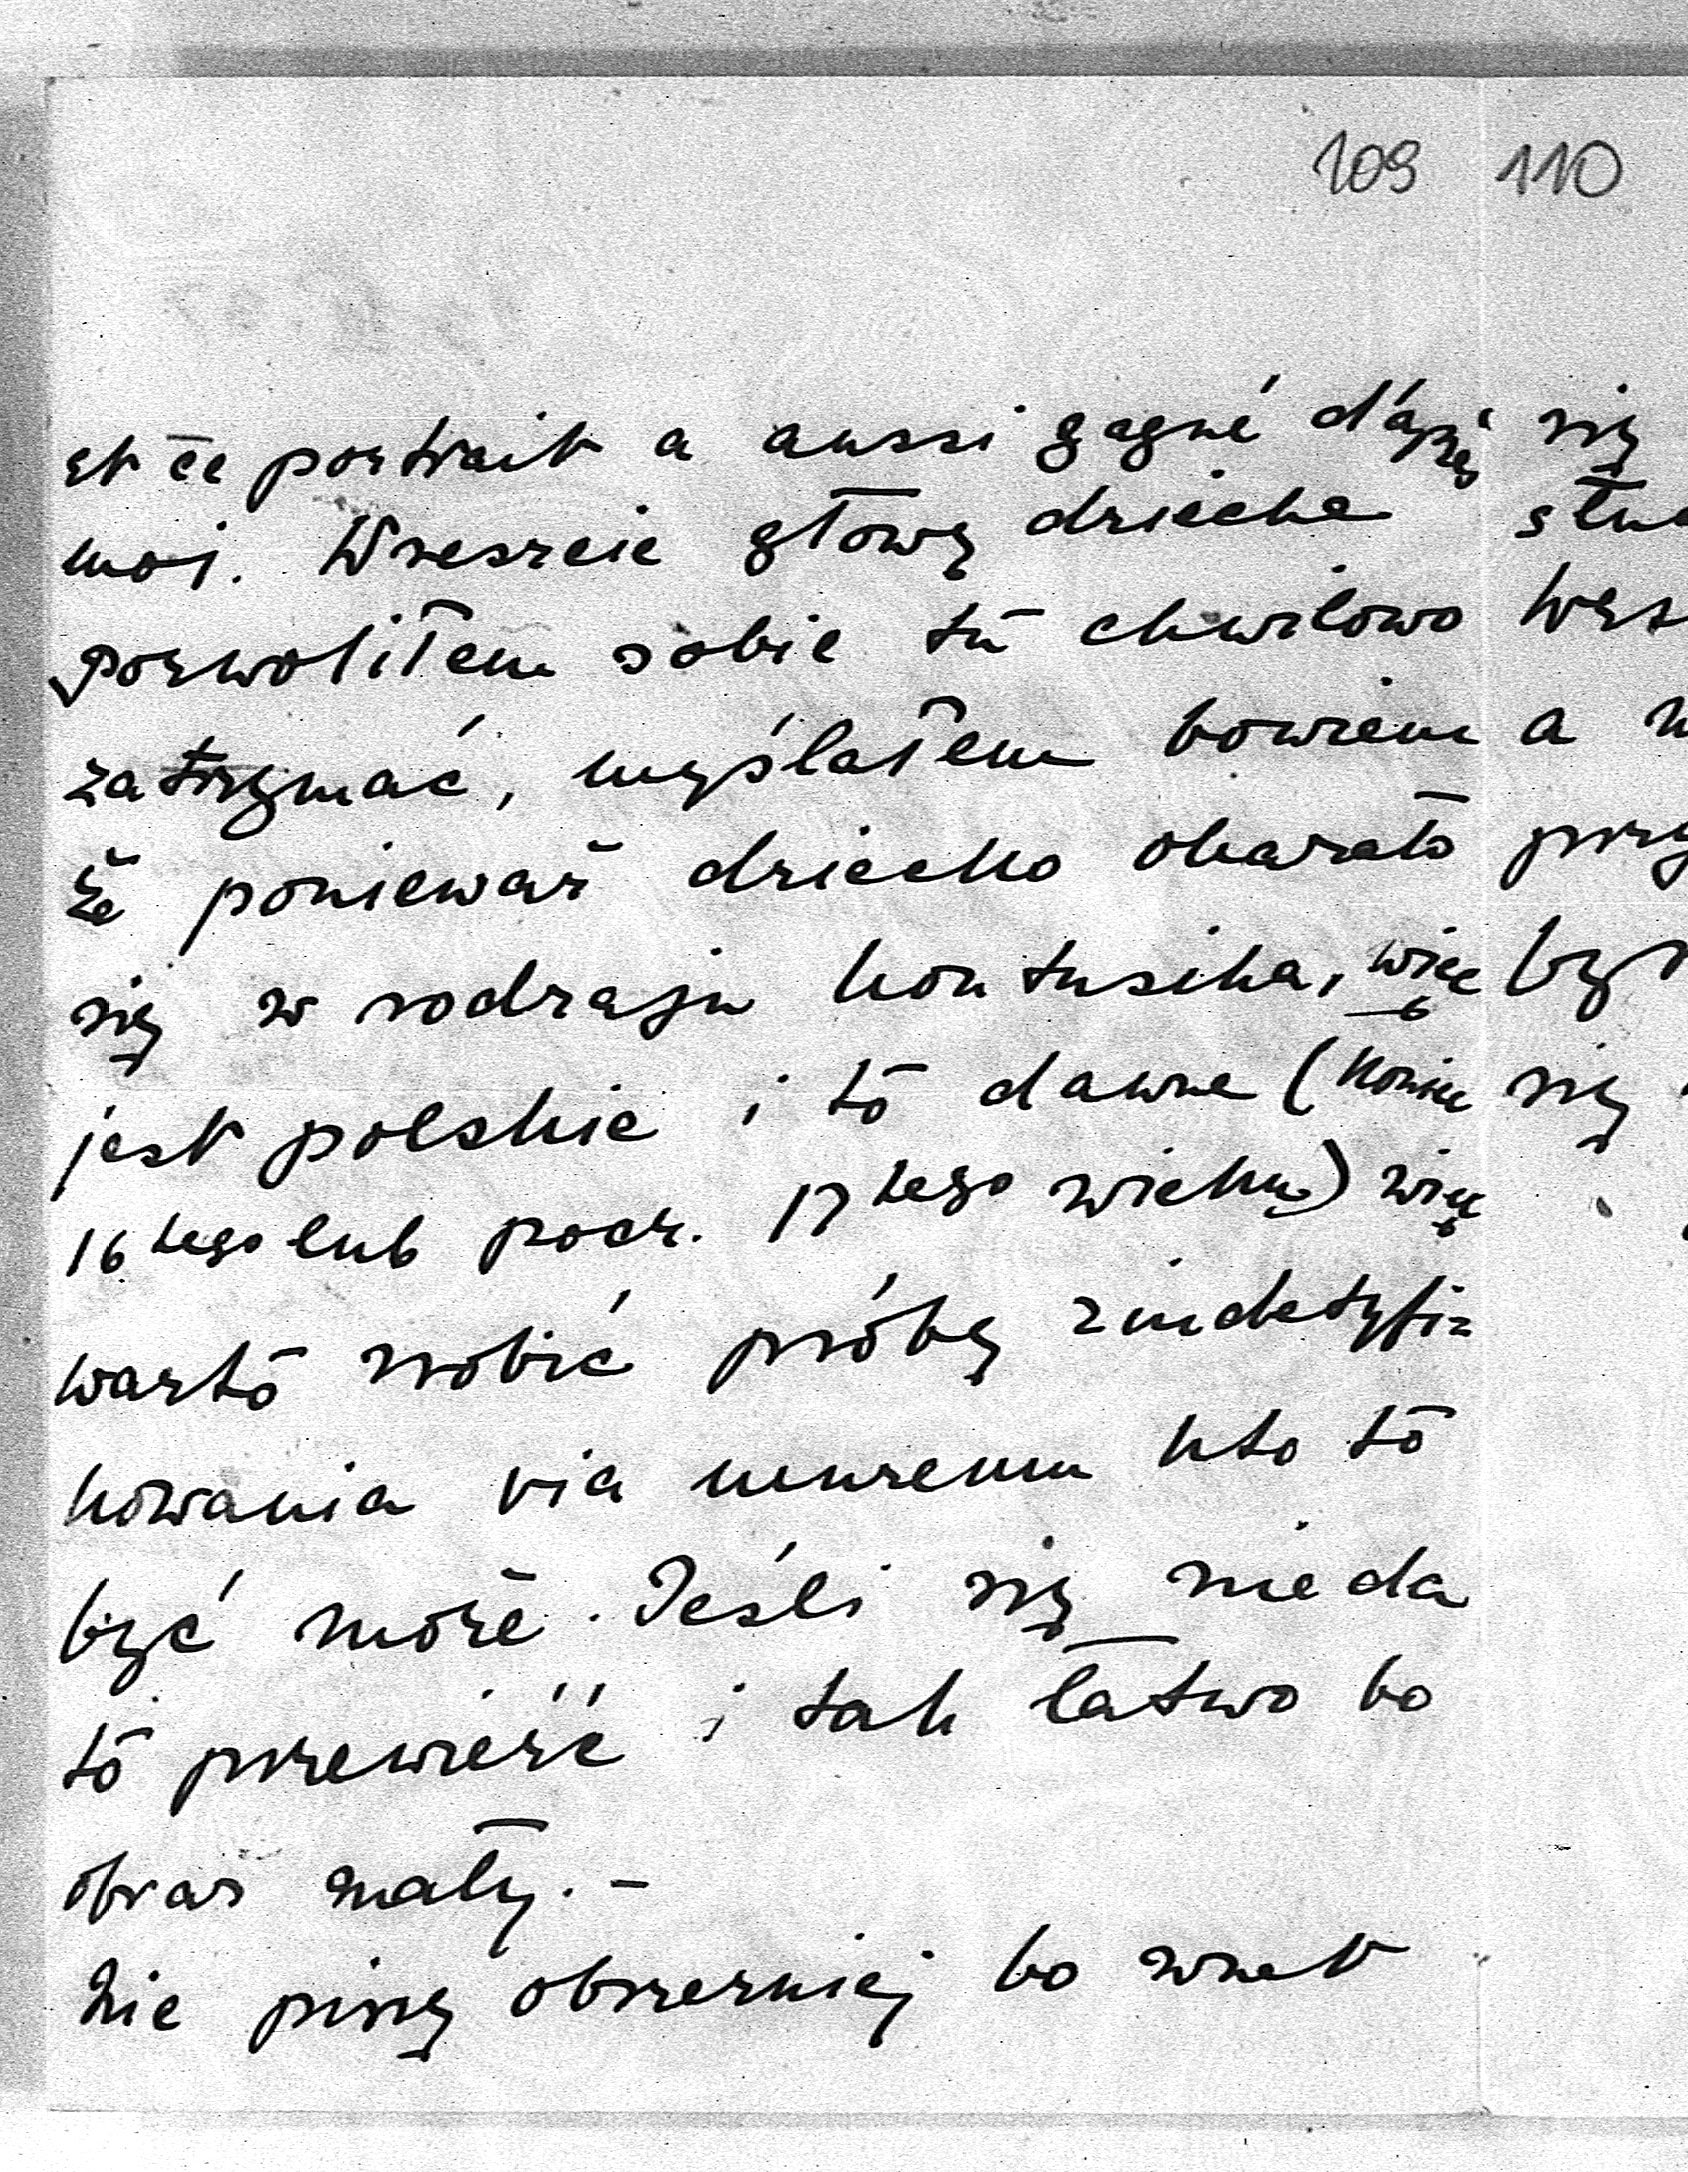 109 110
et ce portrait a aussi gagné d'après
moi. Wreszcie głowę dziecka
pozwoliłem sobie tu chwilowo
zatrzymać, myślałem bowiem
że ponieważ dziecko okazało
się w rodzaju kontusika, więc
jest polskie i to dawne (koniec
16tego lub pocz. 17tego wieku) więc
warto zrobić próbę zindetyfi=
kowania via muzeum kto to
być może. Jeśli się nie da
to przewieźć i tak łatwo bo
obraz mały. -
Nie piszę obszerniej bo wnet
się
a
się